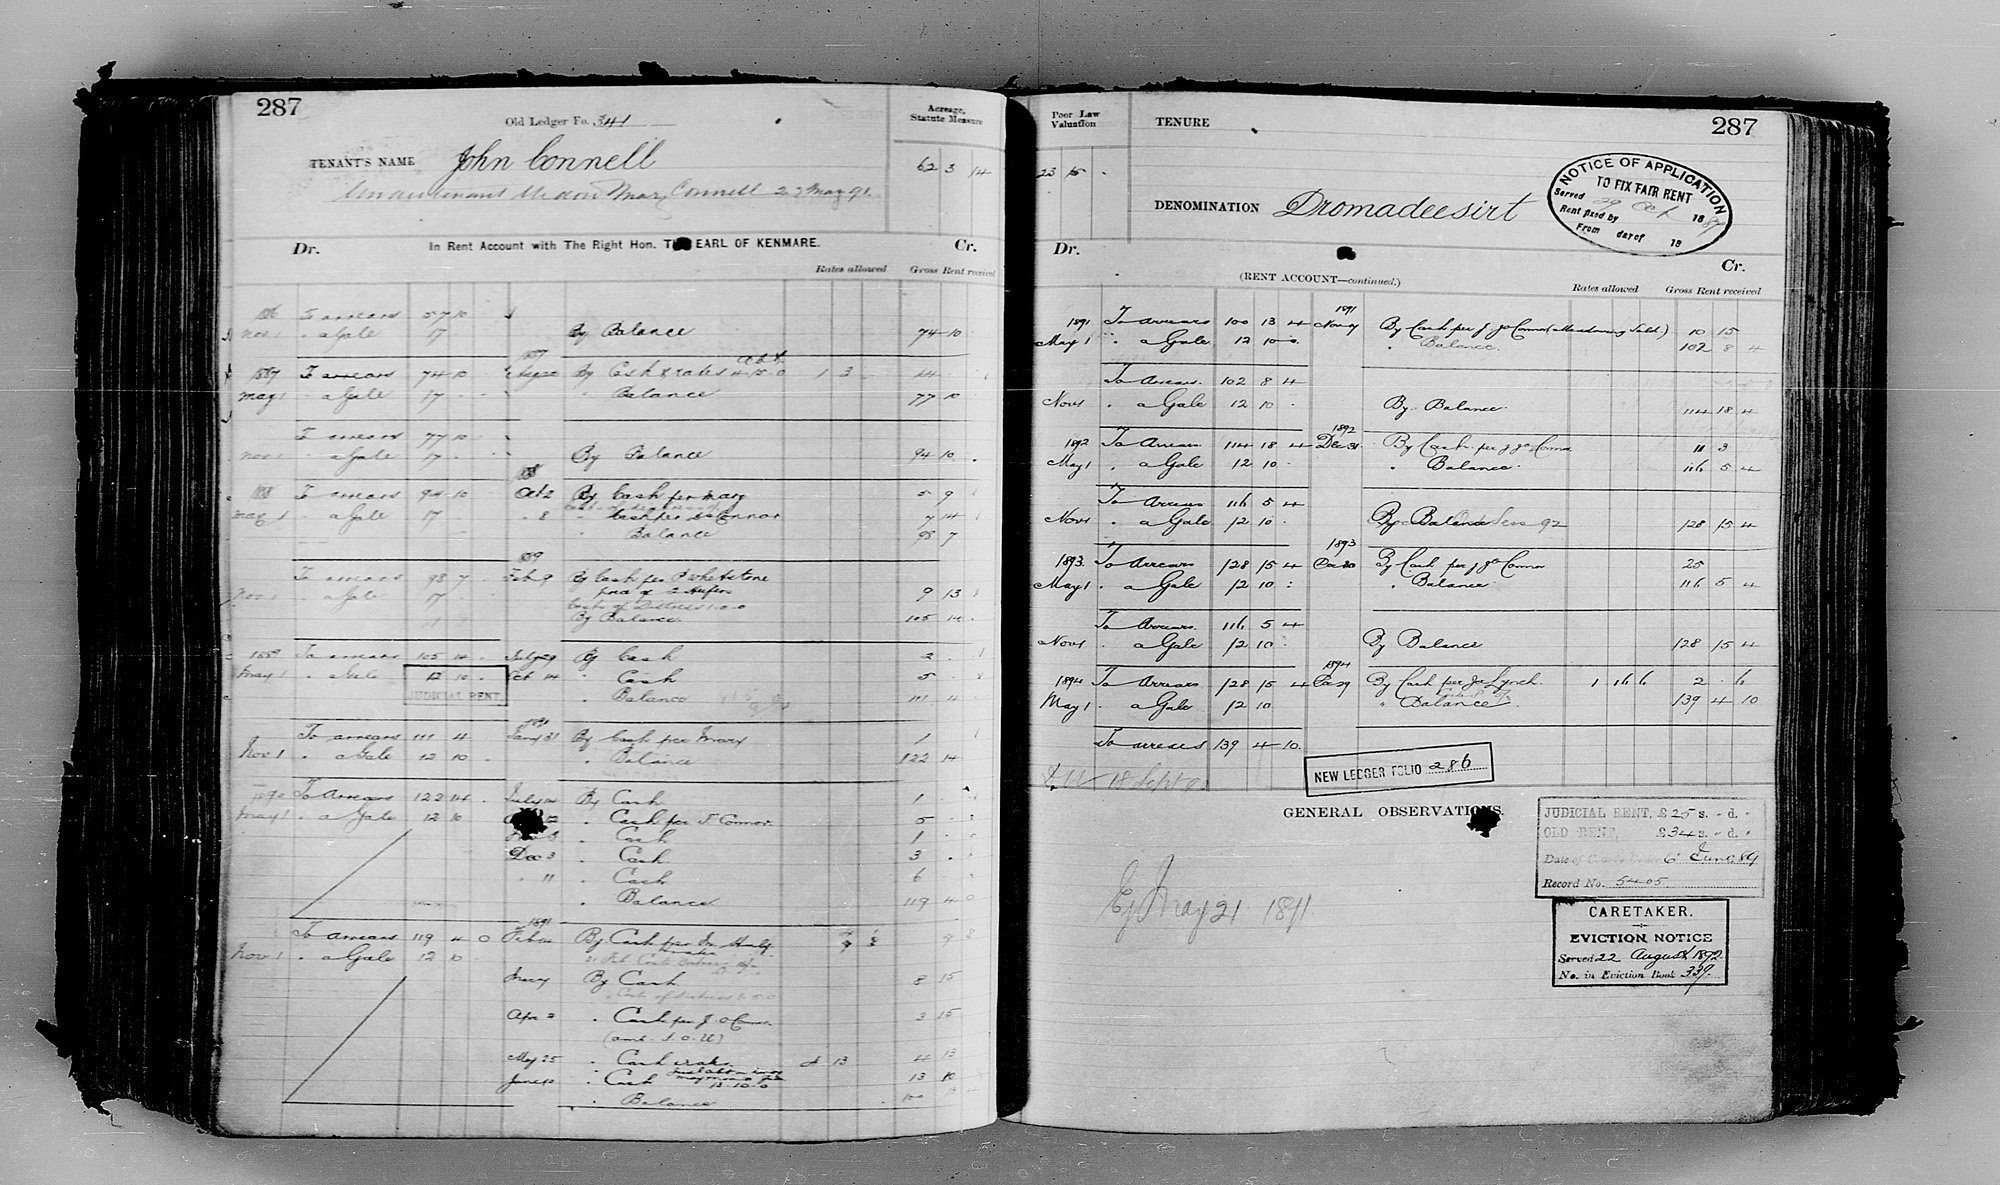 287
Old Ledger Fo. 341
Acreage,
Statute Measure
TENANT'S NAME John Connell
62 3 14
Mary Connell 23 May 91
Dr. In Rent Account with The Right Hon. THE EARL OF KENMARE. Cr.
Rates allowed Gross Rent received
1886 To arrears 57 10
Nov 1 " a Gale 17 By Balance 74 10
1887
1887 To arrears 74 10 By Cash & rates 1 3
May 1 a Gale 17 " Balance 77 10
To arrears 77 10
Nov 1 a Gale 17 By Balance 94 10
1888
1888 To arrears 94 10 Oct 2 By Cash per Mary 5 9
May 1 " a Gale 17 " 8 " Cash per O'Connor 7 14
Balance 98 7
1889
To arrears 98 7 Feb 9 By Cash per P Whetstone
Nov 1 " a Gale 17 price of 2 Heifers 9 13
Costs of Distress 1.0.0
By Balance 105 14
1889 To arrears 105 14 July 29 By Cash 2
May 1 " a Gale 12 10 Oct 14 " Cash 5
JUDICIAL RENT. " Balance 111 4
1890
To arrears 111 4 Jany 31 By Cash per Mary 1
Nov 1 " a Gale 12 10 " Balance 122 14
1890 To Arrears 122 14 July By Cash 1
May 1 " a Gale 12 10 " Cash per J Connor 5
" Cash 1
Dec 3 " Cash 3
" 11 " Cash 6
" Balance 119 4 0
1891
To arrears 119 4 0 Feb By Cash per
Nov 1 " a Gale 12 10
May By Cash 8 15
Costs of Distress 1.5.0
Apr 2 " Cash per J O Connor 3 15
(amt. I.O.U)
May 25 " Cash & rates 13 4 13
June " Cash 13 10
13.10.0
" Balance 100
Poor Law
Valuation
23 15 -
TENURE
287
DENOMINATION Dromadeesirt
NOTICE OF APPLICATION
TO FIX FAIR RENT
Served 29 Oct 1887
Rent fixed by
From day of 18
Dr. Cr.
(RENT ACCOUNT—continued.)
Rates allowed Gross Rent received
1891
1891 To Arrears 100 13 4 Nov By Cash per J JO Connor 10 15
May 1 " a Gale 12 10 " Balance. 102 8 4
To Arrears. 102 8 4
Nov 1 " a Gale 12 10 By Balance 114 18 4
1892
1892 To Arrears 114 18 4 Dec 31 By Cash per J JO Connor 11 3
May 1 " a Gale 12 10 " Balance 116 5 4
To Arrears 116 5 4
Nov 1 " a Gale 12 10 By Balance 128 15 4
1893
1893 To Arrears 128 15 4 Dec 20 By Cash per J JO Connor 25
May 1 " a Gale 12 10 " Balance 116 5 4
To Arrears 116 5 4
Nov 1 " a Gale 12 10 By Balance 128 15 4
1894
1894 To Arrears 128 15 4 Dec 29 By Cash per Jas Lynch 1 16 6 2 - 6
May 1 a Gale 12 10 " Balance 139 4 10
To arrears 139 4 10
18 Sept
NEW LEDGER FOLIO 286
GENERAL OBSERVATIONS.
JUDICIAL RENT, £25 s. - d. -
OLD RENT, £34 s. - d. -
Date of Court Order 6 June 89
Record No. 5405
Ej May 21 1891
CARETAKER.
EVICTION NOTICE
Served 22 August 1892
No. in Eviction Book 339